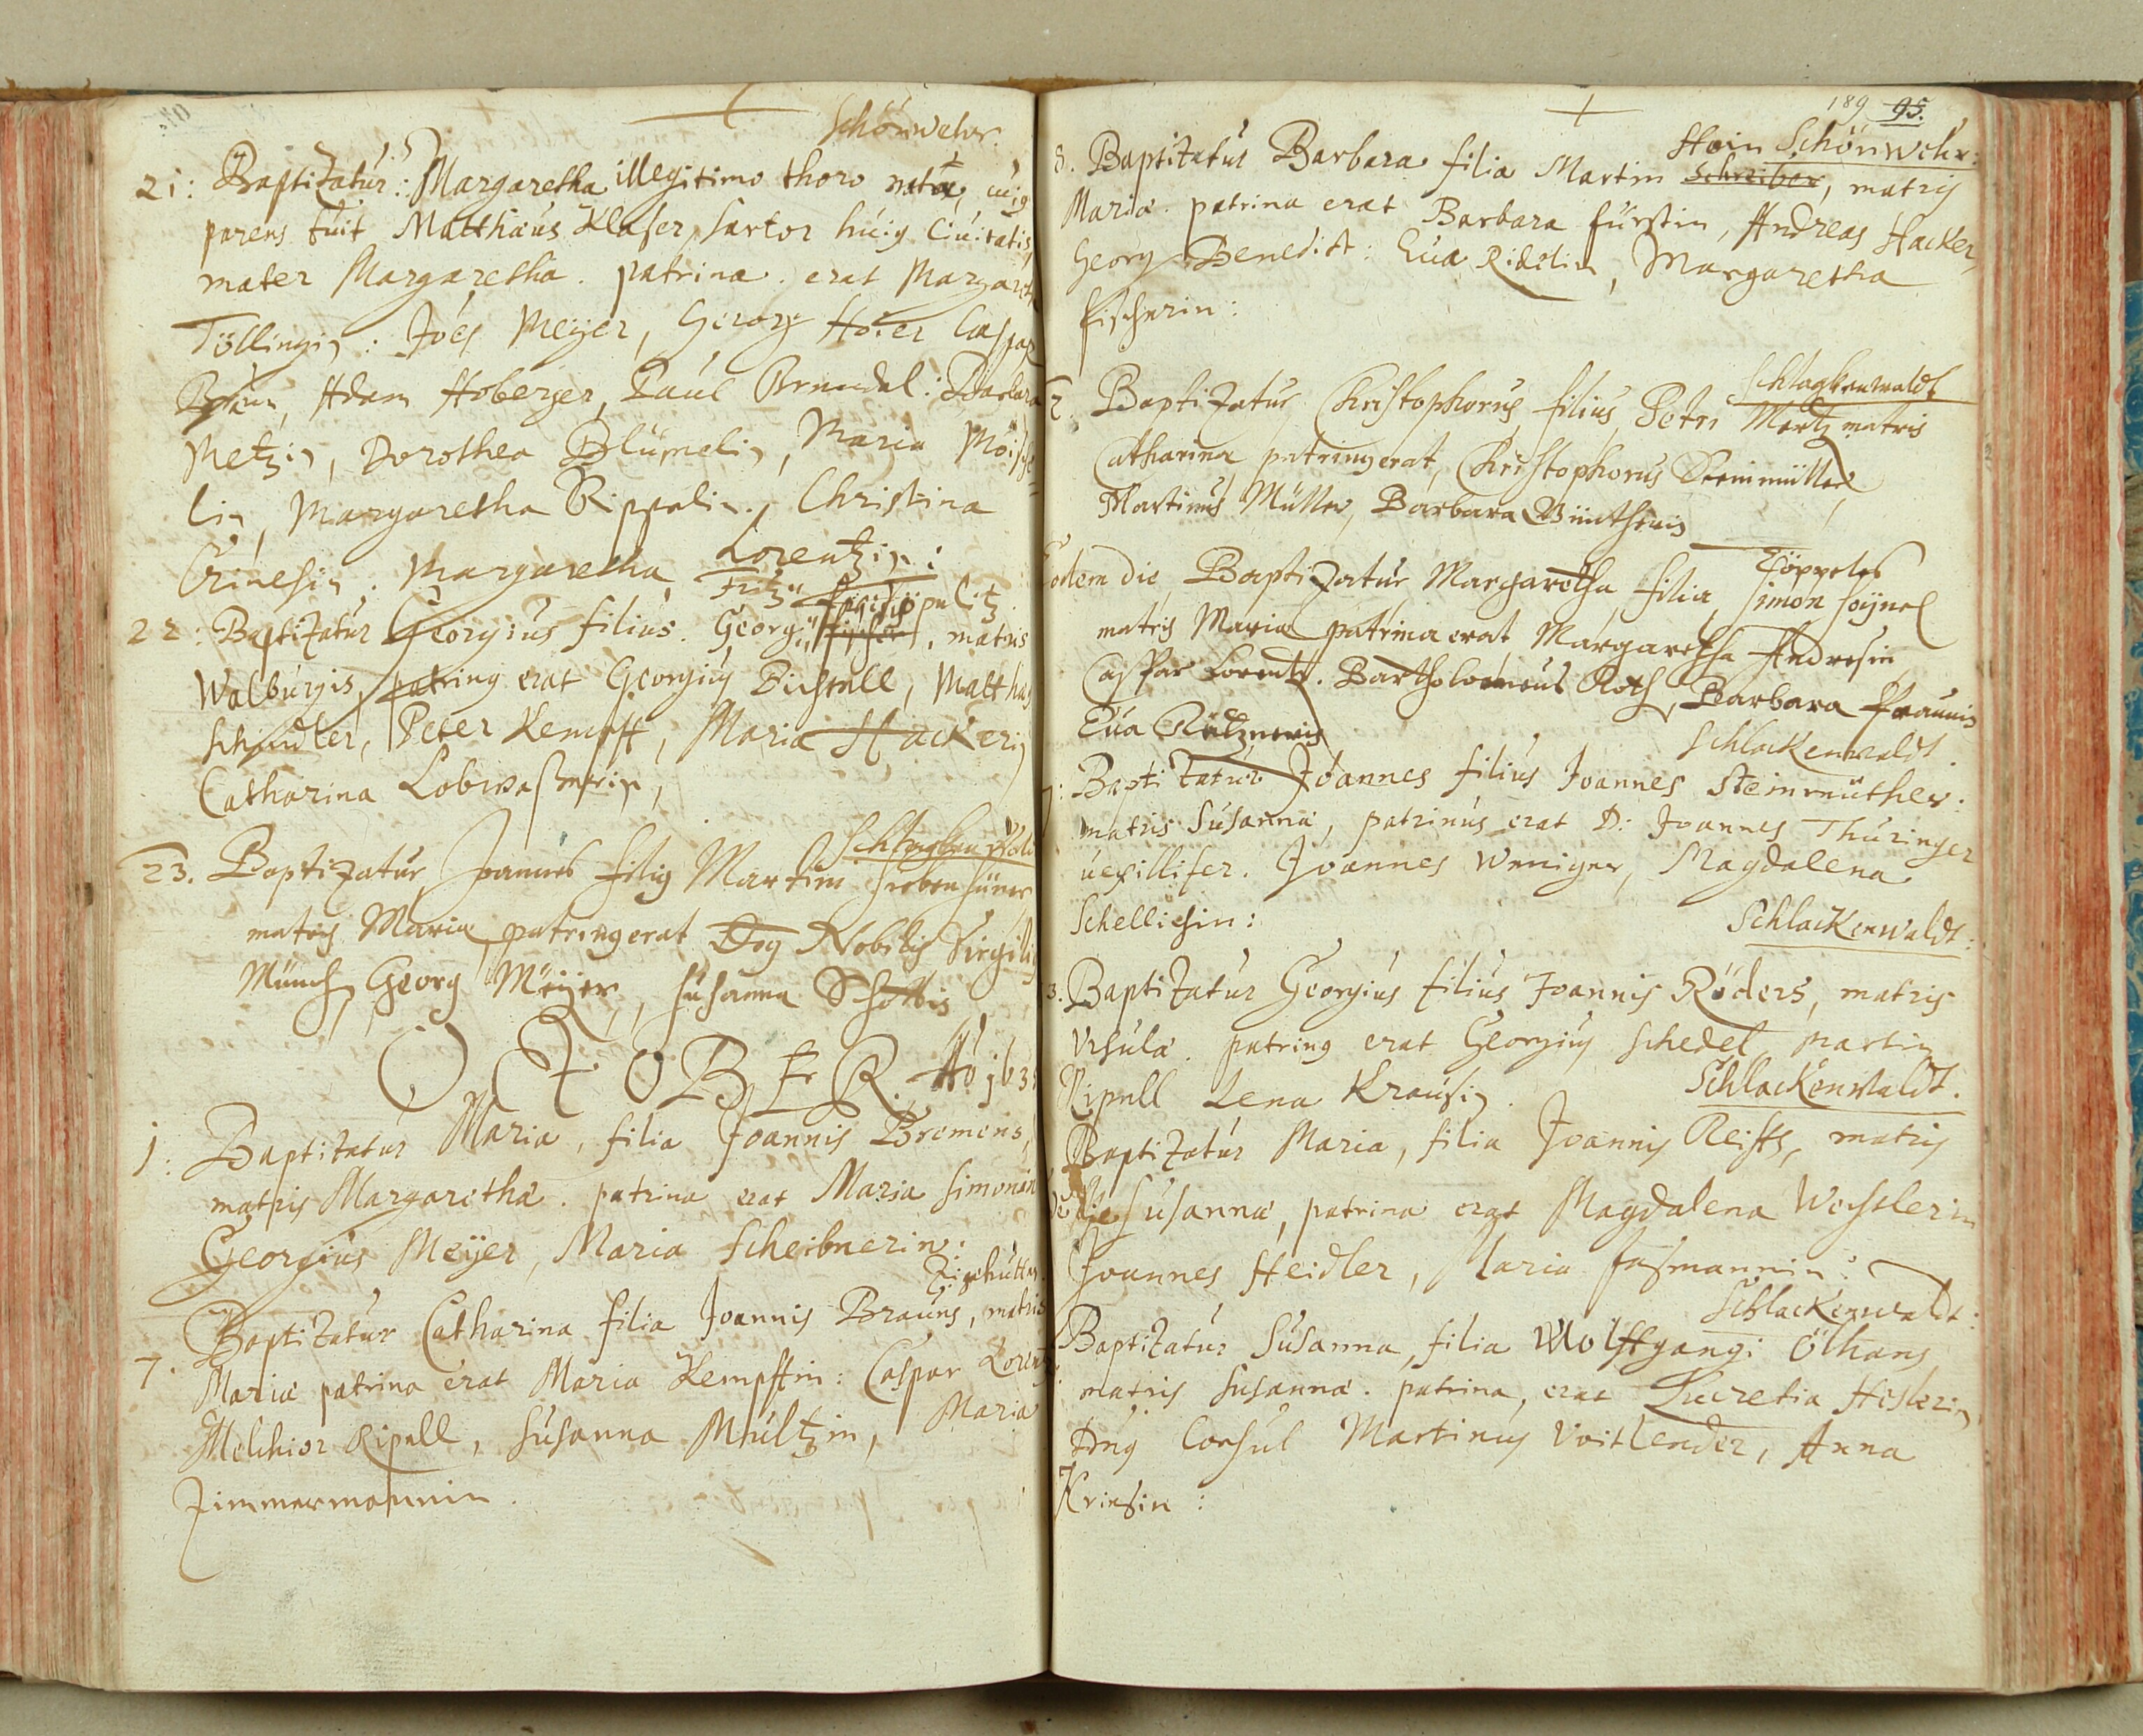 Schönwehr.
21: Baptizatur: Margaretha illegitimo thoro nata, cuig
parens fuit Matthæus Klaser, sartor huig Ciuitatis,
mater Margaretha. patrina. erat Margaret
Töllingin: Joes Meÿer, Georg Hoier Caspar
Adam Hoberger, Paul Brendel: Barbara
Metzin, Dorothea Blümelin, Maria
lin, Margaretha Rippelin, Christina
Crinesin, Margaretha Lorentzin:
22: Baptizatur Georgius filius. Georgii, matris
Walburgis, patring erat Georgius Bichell, Matthæs
Schindler, Peter Kempff, Maria Hackerin
Catharina Lobwasserin,
23. Baptizatur Joannes filig Martini
matris Maria, patring erat Dng Nobilis Virgilig
Münch, Georg Meÿer, Susanna Schottis
OCTOBER. Aō 163
1: Baptizatur Maria, filia Joannis Bremens,
matris Margarethæ. patrina erat Maria Simonin
Georgius Meÿer, Maria Scheibnerin:
Zigehütten.
7. Baptizatur Catharina filia Joannis Brauns, matris
Mariæ patrina erat Maria Kempffin: Caspar Lorentz
Melchior Ripell, Susanna Multzin, Maria
Zimmermannin.
189 95.
Schönwehr:
8. Baptizatur Barbara filia Martin Stein Schreiber, matris
Mariæ. patrina erat Barbara Fürstin, Andreas Hacker,
Georg Benedict: Eua Ridelin, Margaretha
Fischerin:
Schlaghenwaldt
Baptizatur Christophorus filius Petri Mertz matris
Catharina patring erat, Christophorus Steinmüller,
Martinus Müller, Barbara Güntheris
Töppeles
Eodem die Baptizatur Margaretha filia Simon Heÿnel
matris Maria patrina erat Margaretha Andresin
Caspar Lorentz. Bartholomeus Roth, Barbara Praunis
Eua
Schlackenwaldt.
Baptizatur Joannes filius Joannes Steinmüther:
matris Susannæ, patrinus erat D: Joannes Thüringer
uexillifer. Joannes Weniger, Magdalena
Schelliesin:
Schlackenwaldt:
3. Baptizatur Georgius filius Joannis Röders, matris
Vrsulæ. patring erat Georgius Schedel, Martin
Ripell Lena Krausin.
Schlackenwaldt.
Baptizatur Maria, filia Joannis Reists, matris
Susannæ, patrina erat Magdalena Wechslerin
Joannes Heidler, Maria Fasmannin:
Schlackenwaldt:
Baptizatur Susanna, filia Wolffgangi Ölhans
matris Susannæ. patrina, erat Lucretia Heslerin
Dng Consul Martinus Voitlender, Anna
Kriesin: